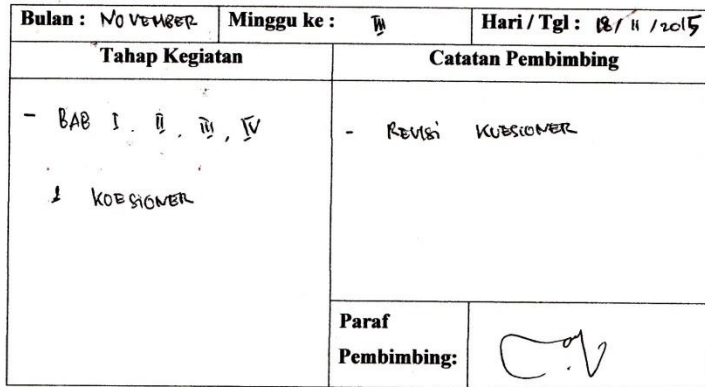 Bulan : NOVEMBER Minggu ke : III Hari / Tgl : 18 / 11 / 2015
Tahap Kegiatan Catatan Pembimbing
- BAB I . II . III , IV
& KOESIONER
- REVISI KUESIONER
Paraf
Pembimbing: